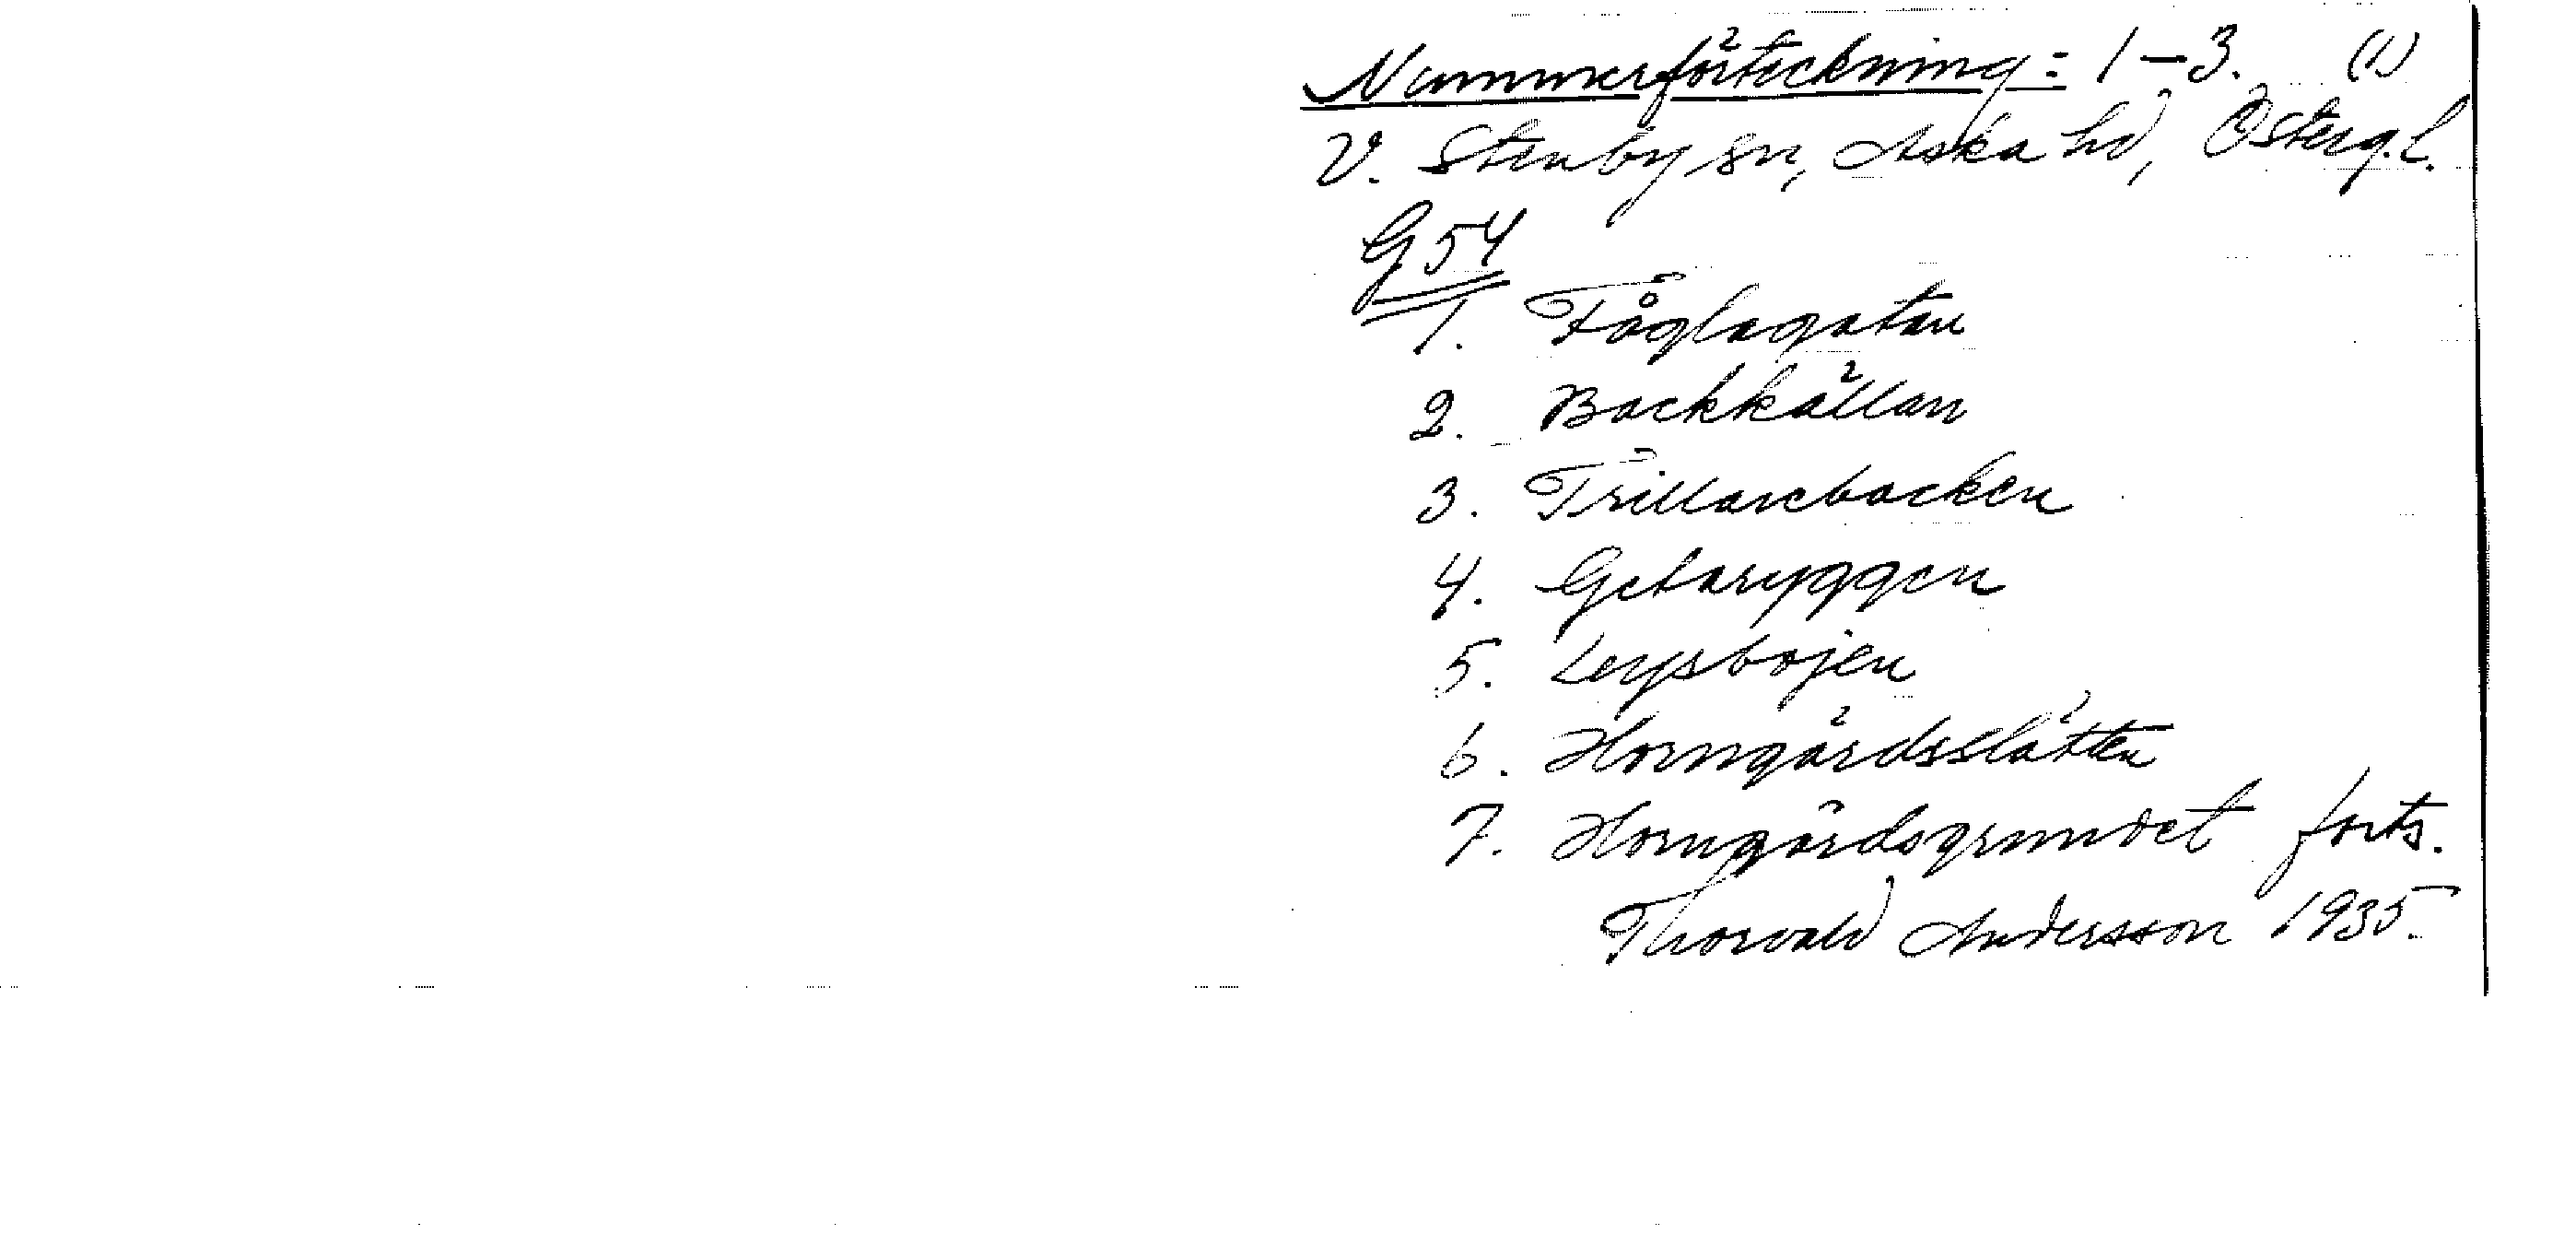 Nummerförteckning: 1–3. (1)
V. Stenby sn, Aska hd, Österg. l.
G 54
1. Fåglagatan
2. Backkällan
3. Trillarebacken
4. Getaryggen
5.
6. Horngärdsslätten
7. Horngärdsgrundet forts.
Thorvald Andersson 1935.